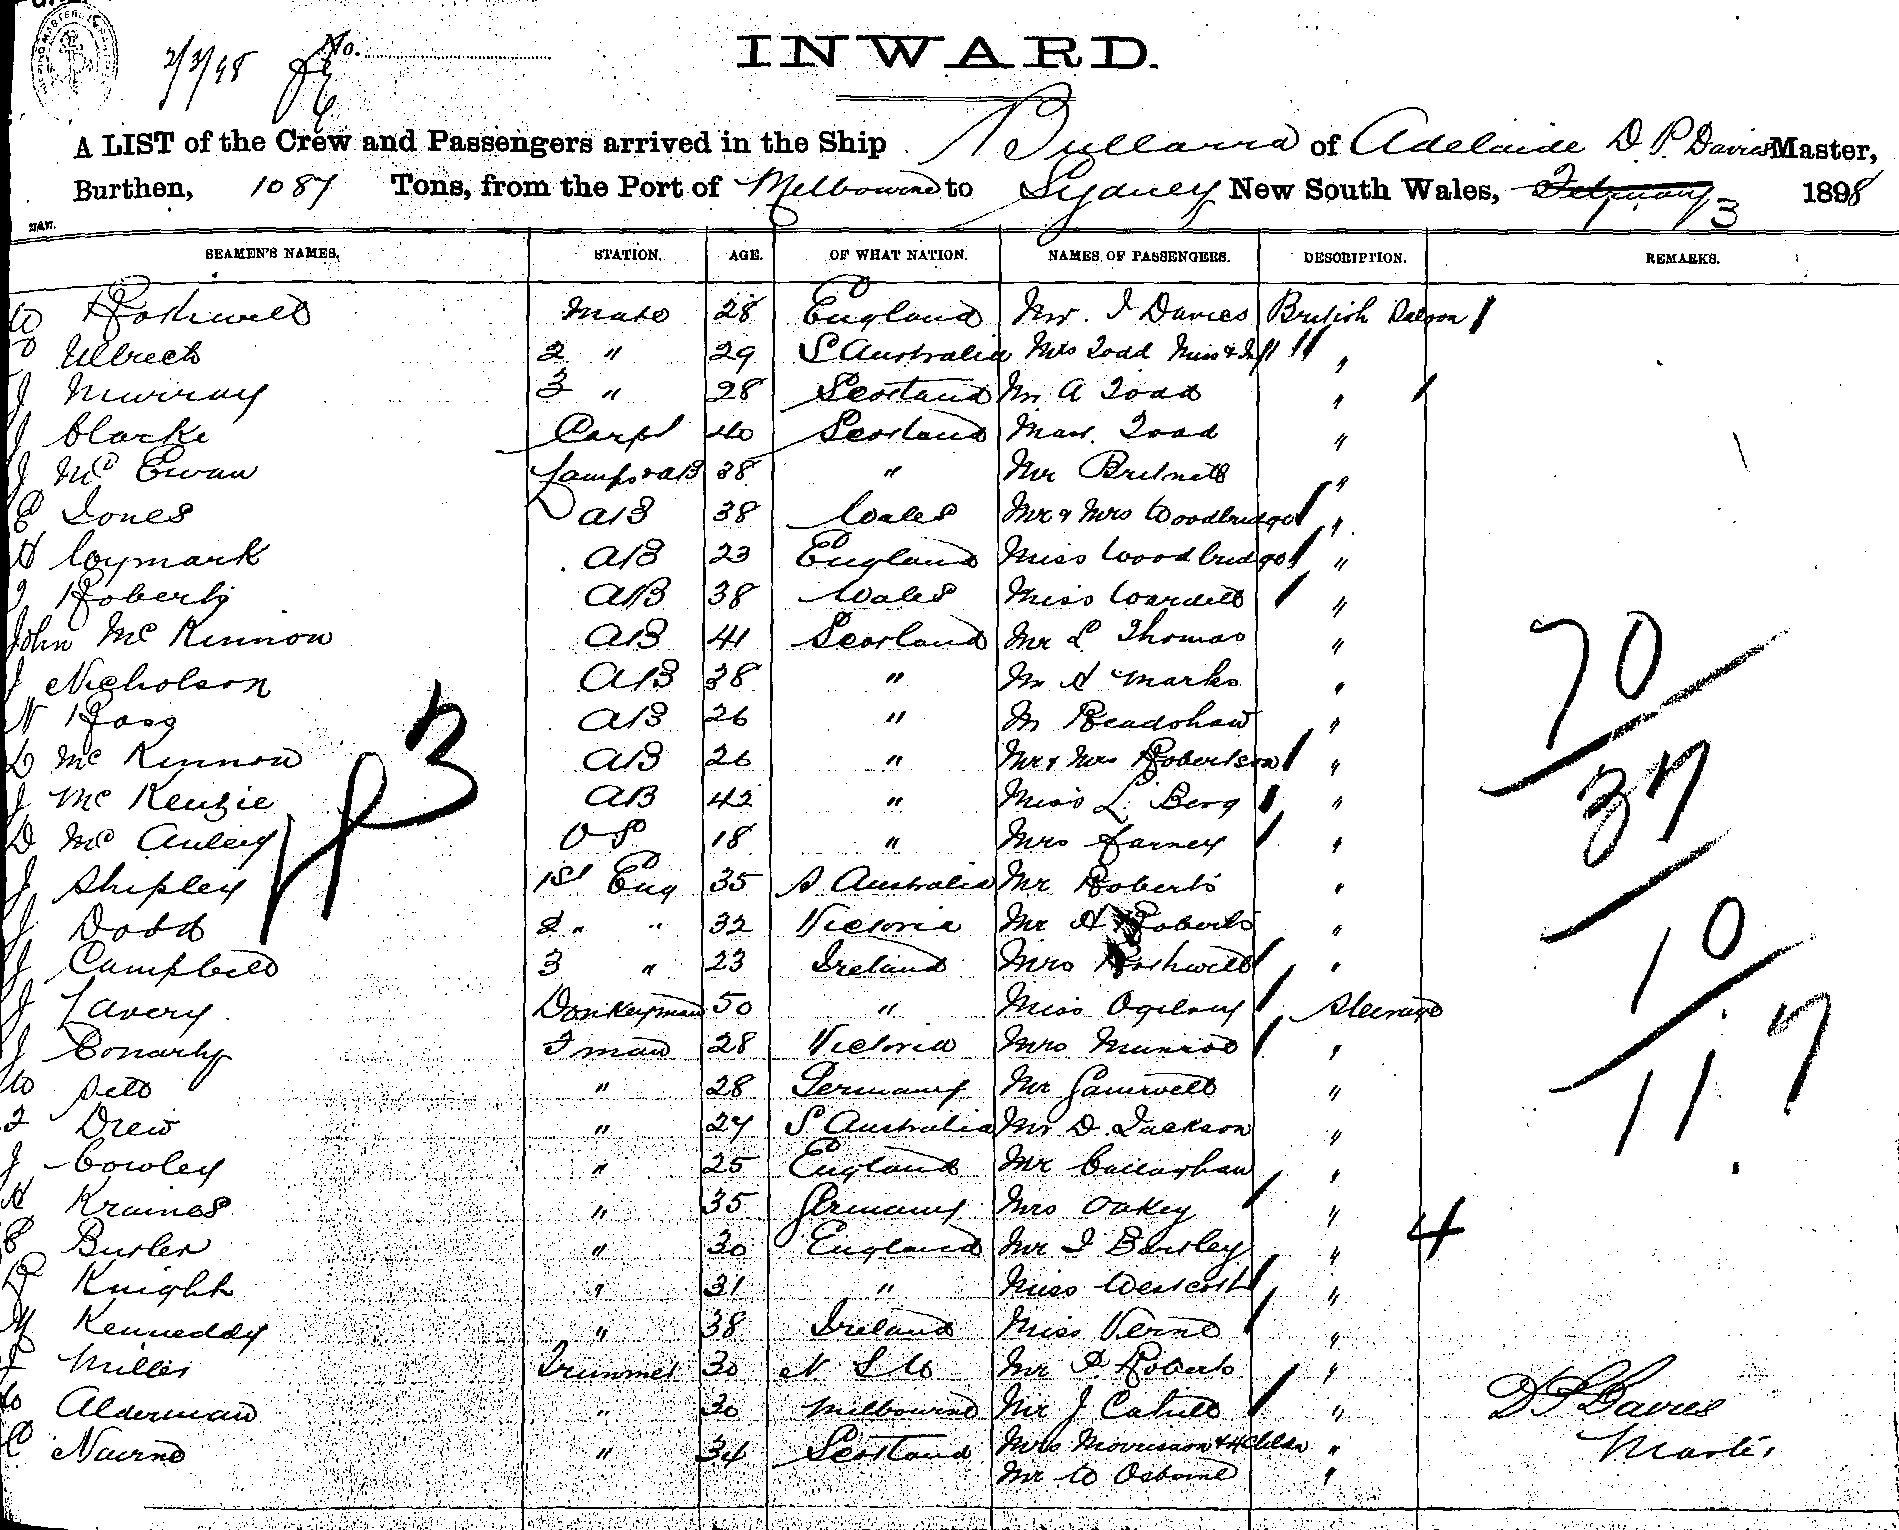 2/3/98 No.
INWARD.
A LIST of the Crew and Passengers arrived in the Ship Bullarra of Adelaide D. P. Davies Master,
Burthen, 1087 Tons, from the Port of Melbourne to Sydney New South Wales, February 3 1898
SEAMEN'S NAMES. STATION. AGE. OF WHAT NATION. NAMES OF PASSENGERS. DESCRIPTION. REMARKS.
W Rothwell Mate 28 England Mr. I Davies British Saloon
Ulbrech 2 " 29 S Australia Mrs Todd Miss & Inft "
J Murray 3 " 28 Scotland Mr A Todd "
J Clarke Carpt 40 Scotland Mas. Todd "
J McEwan Lamps & AB 38 " Mr Britnell "
E Jones AB 38 Wales Mr & Mrs Woodbridge "
H Coymark AB 23 England Miss Woodbridge "
Roberts AB 38 Wales Miss Wardell "
John McKinnon AB 41 Scotland Mr L Thomas "
J Nicholson AB 38 " Mr H Marks "
N Ross AB 26 " Mr Readshaw "
D McKinnon AB 26 " Mr & Mrs Robertson "
J McKenzie AB 42 " Miss L. Berg "
D McAuley OS 18 " Mrs Farney "
J Shipley 1st Eng 35 S Australia Mr Roberts "
J Dodd 2 " " 32 Victoria Mr H Roberts "
J Campbell 3 " 23 Ireland Mrs Rothwell "
J Lavery Donkeyman 50 " Miss Ogilvy Steerage
J Conarty Fman 28 Victoria Mrs Munroe "
W Sello " 28 Germany Mr Gamwell "
Drew " 27 S Australia Mr D. Jackson "
J Cowley " 25 England Mr Callaghan "
H Kraines " 35 Germany Mrs Oakey "
Butler " 30 England Mr I Bursley " 4
Knight " 31 " Miss Westcott "
M Kenneddy " 38 Ireland Miss Verne "
J Miller Trimmer 30 N S W Mr P Roberts "
W Alderman " 30 Melbourne Mr J Cahill "
C Nairne " 34 Scotland Mrs Morrisson & 4 Childn "
Mr W Osborne "
3
70
37
10
117
D P Davies
Master